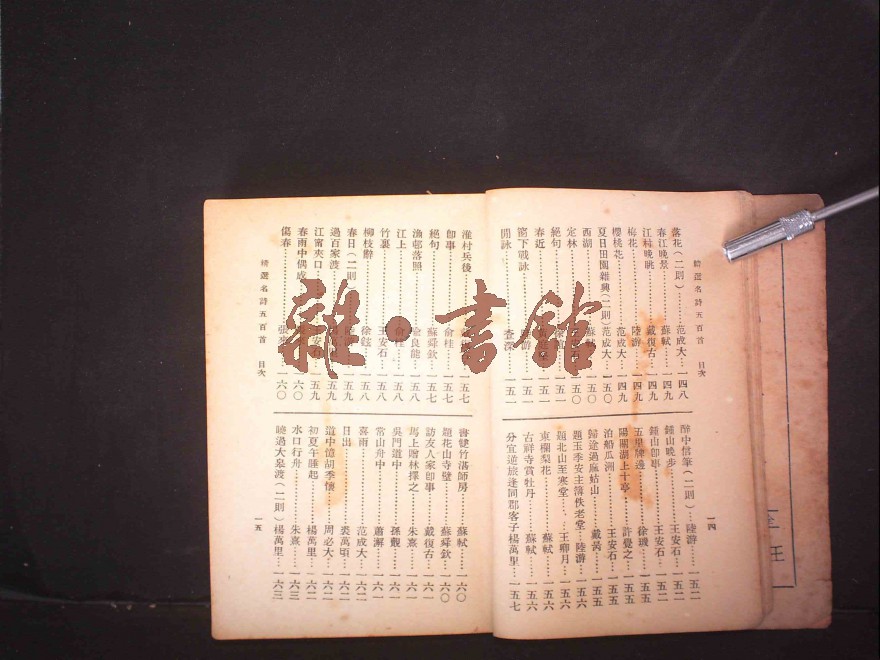 精選名詩五百首 目次
一四
落花(二則)……范成大…一四八
春江晚景……蘇軾…一四九
江村晚眺……戴復古…一四九
梅花……陸游…一四九
櫻桃花……范成大…一四九
夏日田園雜興(二則)范成大…一五〇
西湖……蘇軾…一五〇
定林……一五〇
絕句
春近
窗下戲詠……游…一五一
閒詠……查深…一五一
醉中信筆(二則)…陸游…一五二
鍾山晚步……王安石…一五二
鍾山卽事……王安石…一五二
五里牌邊……徐璣…一五五
陽關湖上十亭……許覺之…一五五
泊船瓜洲……王安石…一五五
歸途過麻姑山……戴昺…一五五
題玉季安主簿佚老堂…陸游…一五六
題北山至寒堂……王卿月…一五六
東欄梨花……蘇軾…一五六
古祥寺賞牡丹……蘇軾…一五六
分宜逆旅逢同郡客子楊萬里…一五七
淮村兵後……五七
卽事……俞桂…一五七
絕句……蘇舜欽…一五七
漁邨落照……俞良能…一五八
江上……俞桂…一五八
竹裏……王安石…一五八
柳枝辭……徐鉉…一五八
春日(二則)……一五九
過百家渡……一五九
江甯夾口……王安石…一五九
春雨中偶成……一六〇
傷春……張耒…一六〇
書雙竹湛師房……蘇軾…一六〇
題花山寺壁……蘇舜欽…一六〇
訪友人家卽事……戴復古…一六一
馬上贈林擇之……朱熹…一六一
吳門道中……孫覿…一六一
常山舟中……蕭澥…一六一
喜雨……范成大…一六二
日出……裘萬頃…一六二
道中憶胡季懷……周必大…一六二
初夏午睡起……楊萬里…一六二
水口行舟……朱熹…一六三
曉過大皋渡(二則)楊萬里…一六三
精選名詩五百首 目次
一五
雜·書館